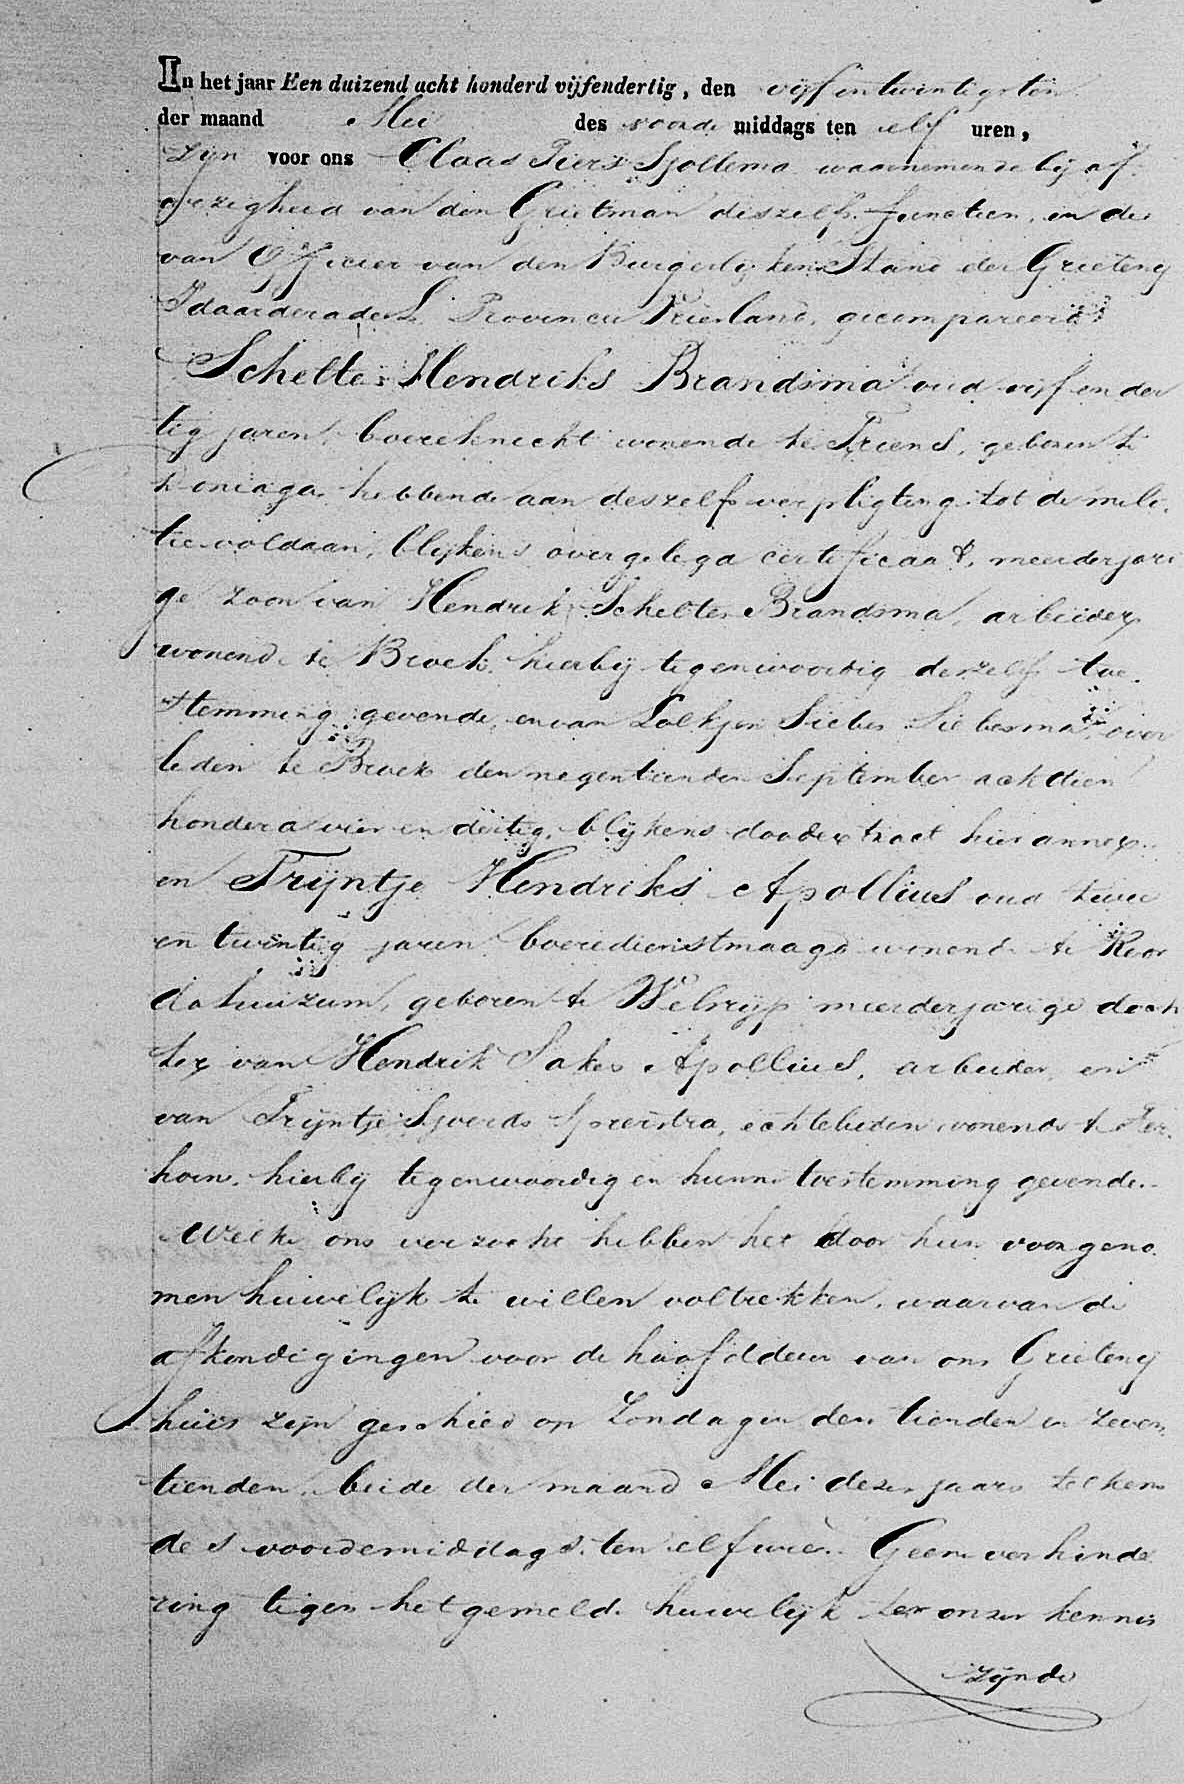 In het jaar Een duizend acht honderd vijfendertig, den vijf en twintigsten
der maand Mei des voorde middags ten elf uren,
zyn voor ons Claas Piers Sjollema waarnemende by af
wezigheid van den Grietman deszelfs functien, en die
van Officier van den Burgerlyken Stand der Grieteny
Idaarderadeel Provincie Friesland, gecompareerd
Schelte Hendriks Brandsma oud vyf en der
tig jaren, boereknecht wonende te Friens, geboren te
Doniaga hebbende aan deszelfs verpligting tot de mili
tie voldaan, blykens overgelegd certificaat, meerderjari
ge zoon van Hendrik Scheltes Brandsma, arbeider
wonende te Broek, hierby tegenwoordig deszelfs toe
stemming gevende, en van Lolkjen Siebes Siebesma over
leden te Broek den negentienden September achttien
honderd vier en dertig, blykens doodextract hier annex
en Tryntje Hendriks Apollius oud twee
en twintig jaren boeredienstmaagd wonende te Roor
dahuizum, geboren te Welsryp meerderjarige doch
ter van Hendrik Sakes Apollius, arbeider, en
van Tryntje Sjoerds Spreistra, echtelieden wonende te Ter
horn, hierby tegenwoordig en hunne toestemming gevende.
Welke ons verzocht hebben het door hun voorgeno
men huwelyk te willen voltrekken, waarvan de
afkondigingen voor de hoofddeur van ons Grieteny
huis zyn geschied op Zondagen den tienden en zeven
tienden, beide der maand Mei dezes jaars telkens
des voordemiddags ten elf ure. Geene verhinde
ring tegen het gemelde huwelyk ter onzer kennis
zynde